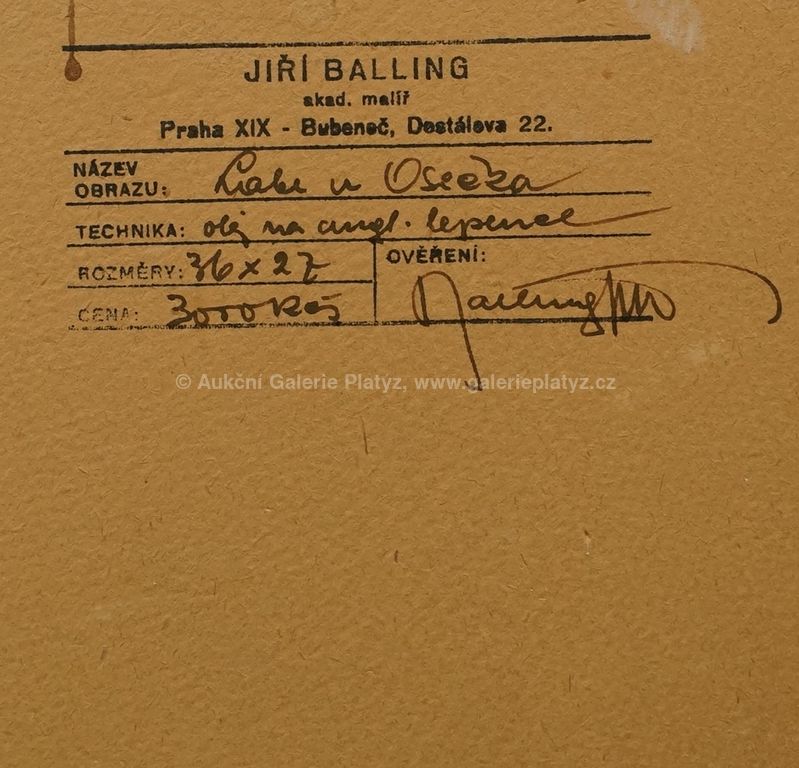 JIŘÍ BALLING
akad. malíř
Praha XIX - Bubeneč, Dostálova 22.
NÁZEV
OBRAZU: Labe u Osečka
TECHNIKA: olej na angl. lepence
ROZMĚRY: 36 x 27
OVĚŘENÍ:
CENA: 3000 Kčs
Balling
© Aukční Galerie Platyz, www.galerieplatyz.cz